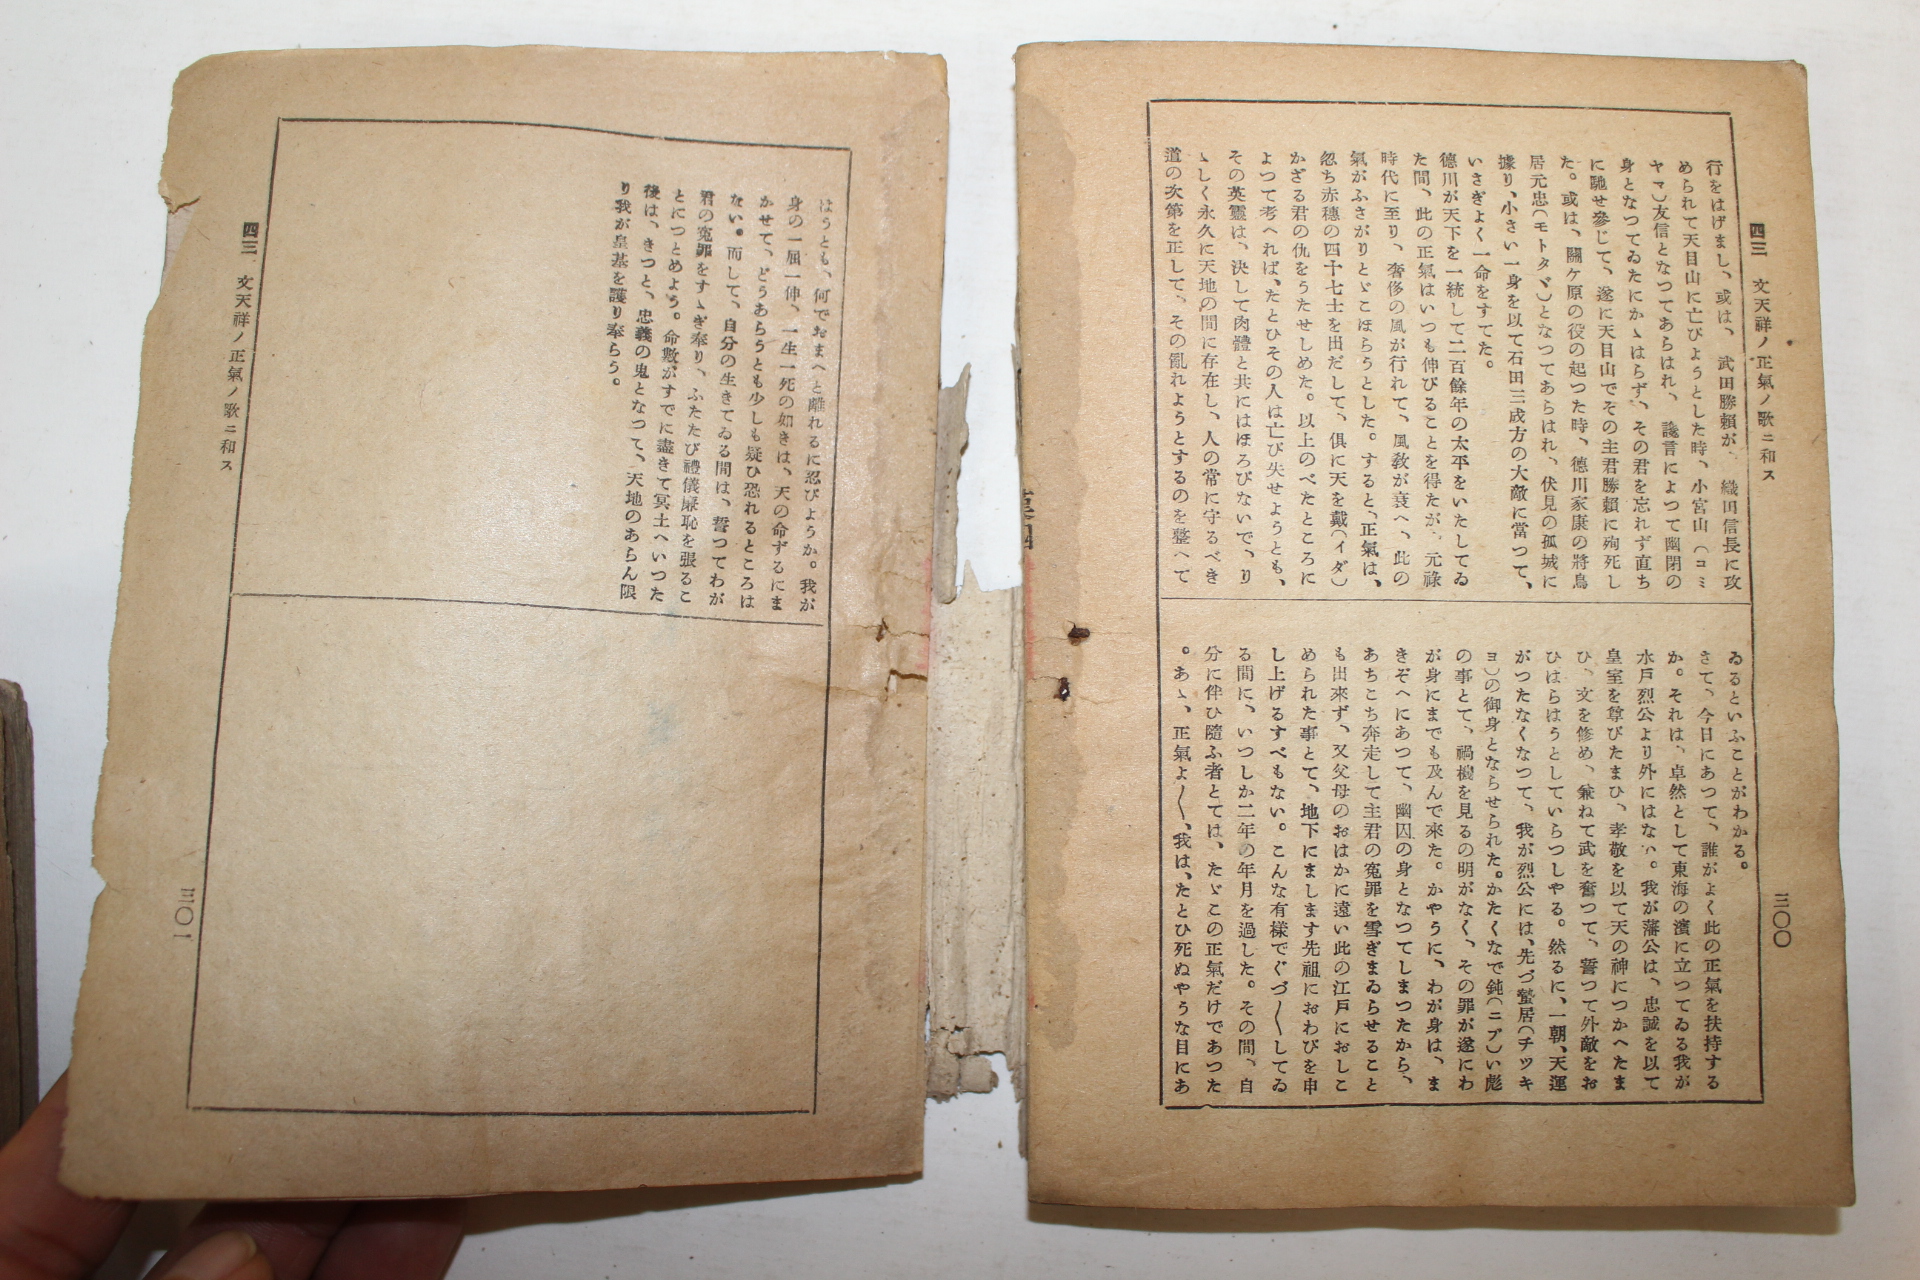 四三 文天祥ノ正氣ノ歌ニ和ス
三〇〇
行をはげまし、或は、武田勝賴が、織田信長に攻
められて天目山に亡びようとした時、小宮山(コミ
ヤマ)友信となつてあらはれ、讒言によつて幽閉の
身となつてゐたにかゝはらず、その君を忘れず直ち
に馳せ參じて、遂に天目山でその主君勝賴に殉死し
た。或は、關ケ原の役の起つた時、德川家康の將鳥
居元忠(モトタヾ)となつてあらはれ、伏見の孤城に
據り、小さい一身を以て石田三成方の大敵に當つて、
いさぎよく一命をすてた。
德川が天下を一統して二百餘年の太平をいたしてゐ
た間、此の正氣はいつも伸びることを得たが、元祿
時代に至り、奢侈の風が行れて、風敎が衰へ、此の
氣がふさがりとゞこほらうとした。すると、正氣は、
忽ち赤穗の四十七士を出だして、俱に天を戴(イダ)
かざる君の仇をうたせしめた。以上のべたところに
よつて考へれば、たとひその人は亡び失せようとも、
その英靈は、決して肉體と共にはほろびないで、り
ゝしく永久に天地の間に存在し、人の常に守るべき
道の次第を正して、その亂れようとするのを整へて
ゐるといふことがわかる。
さて、今日にあつて、誰がよく此の正氣を扶持する
か。それは、卓然として東海の濱に立つてゐる我が
水戶烈公より外にはない。我が藩公は、忠誠を以て
皇室を尊びたまひ、孝敬を以て天の神につかへたま
ひ、文を修め、兼ねて武を奮つて、誓つて外敵をお
ひはらはうとしていらつしやる。然るに、一朝、天運
がつたなくなつて、我が烈公には、先づ蟄居(チツキ
ヨ)の御身とならせられた。かたくなで鈍(ニブ)い彪
の事とて、禍機を見るの明がなく、その罪が遂にわ
が身にまでも及んで來た。かやうに、わが身は、ま
きぞへにあつて、幽囚の身となつてしまつたから、
あちこち奔走して主君の寃罪を雪ぎまゐらせること
も出來ず、又父母のおはかに遠い此の江戶におしこ
められた事とて、地下にまします先祖におわびを申
し上げるすべもない。こんな有樣でぐづ〱してゐ
る間に、いつしか二年の年月を過した。その間、自
分に伴ひ隨ふ者とては、たゞこの正氣だけであつた
。あゝ、正氣よ〱、我は、たとひ死ぬやうな目にあ
はうとも、何でおまへと離れるに忍びようか。我が
身の一屈一伸、一生一死の如きは、天の命ずるにま
かせて、どうあらうとも少しも疑ひ恐れるところは
ない。而して、自分の生きてゐる間は、誓つてわが
君の寃罪をすゝぎ奉り、ふたたび禮儀廉恥を張るこ
とにつとめよう。命數がすでに盡きて冥土へいつた
後は、きつと、忠義の鬼となつて、天地のあらん限
り我が皇基を護り奉らう。
四三 文天祥ノ正氣ノ歌ニ和ス
三〇一